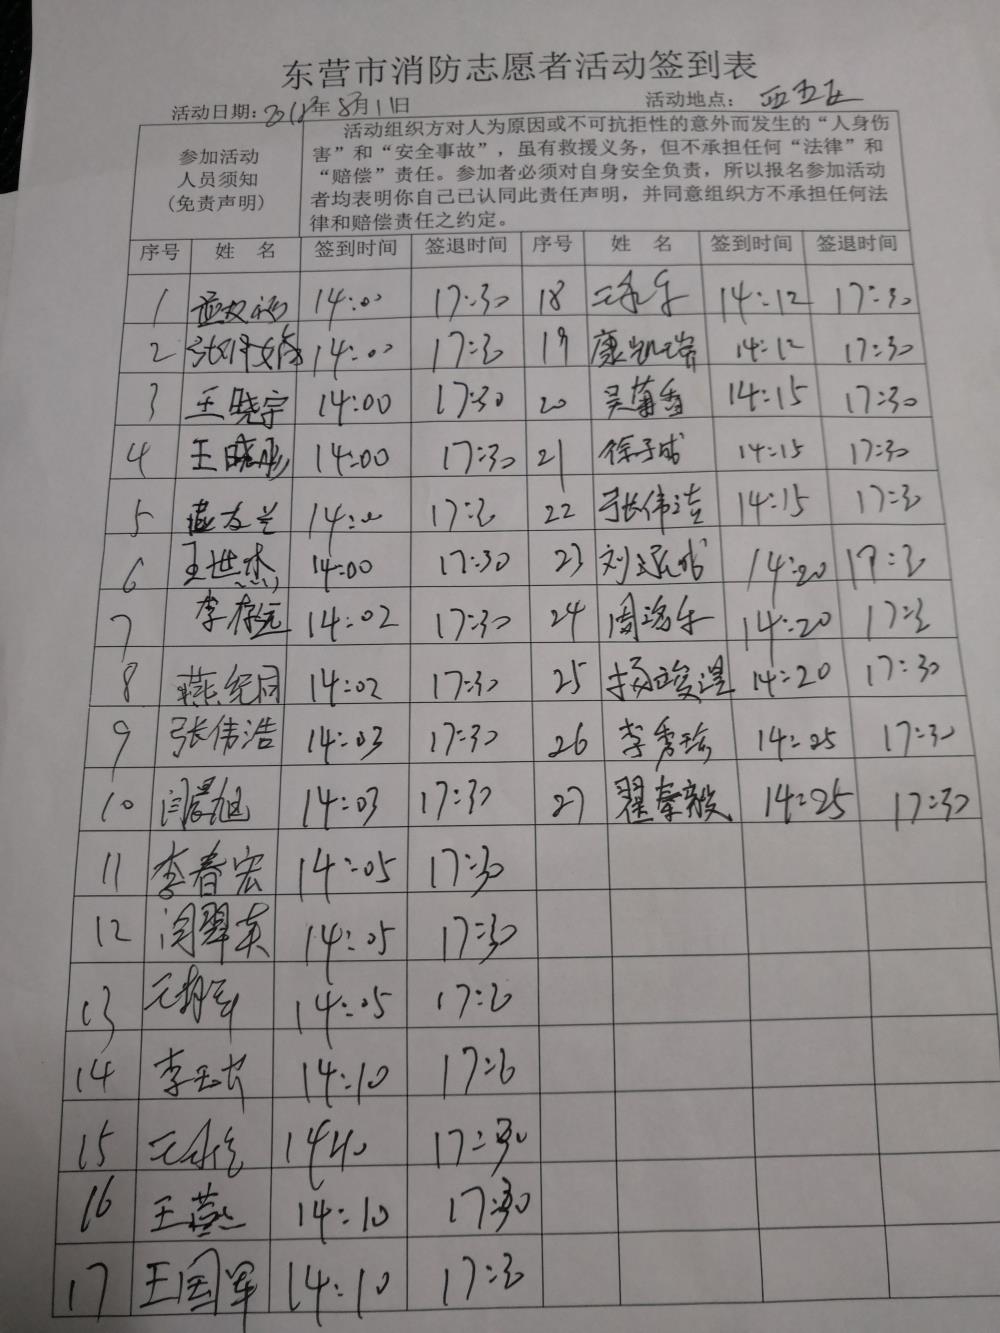 东营市消防志愿者活动签到表
活动日期：2018年8月11日 活动地点：
参加活动
人员须知
(免责声明)
活动组织方对人为原因或不可抗拒性的意外而发生的“人身伤
害”和“安全事故”，虽有救援义务，但不承担任何“法律”和
“赔偿”责任。参加者必须对自身安全负责，所以报名参加活动
者均表明你自己已认同此责任声明，并同意组织方不承担任何法
律和赔偿责任之约定。
序号 姓 名 签到时间 签退时间 序号 姓 名 签到时间 签退时间
1 14:00 17:30 18 14:12 17:30
2 14:00 17:30 19 康凯瑞 14:12 17:30
3 王晓宇 14:00 17:30 20 吴菊香 14:15 17:30
4 王晓彤 14:00 17:30 21 徐子成 14:15 17:30
5 14:00 17:30 22 张伟洁 14:15 17:30
6 王世杰 14:00 17:30 23 14:20 17:30
7 李存远 14:02 17:30 24 14:20 17:30
8 燕纪同 14:02 17:30 25 14:20 17:30
9 张伟浩 14:03 17:30 26 李秀瑜 14:25 17:30
10 闫晨旭 14:03 17:30 27 翟秦毅 14:25 17:30
11 李春宏 14:05 17:30
12 闫翠英 14:05 17:30
13 14:05 17:30
14 14:10 17:30
15 1410 17:30
16 王燕 14:10 17:30
17 王国军 14:10 17:30